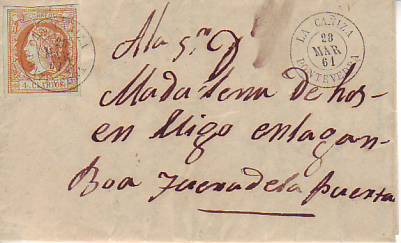 CORREOS
4 CUARTOS
LA CAÑIZA
28
MAR
61
PONTEVEDRA
A la Sra. D.
Madalena de hos-
en Migo en la gan-
Boa fuera de la puerta